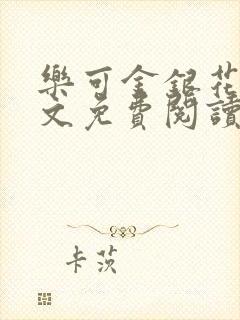 樂可金銀花
文免費閱讀
卡茨